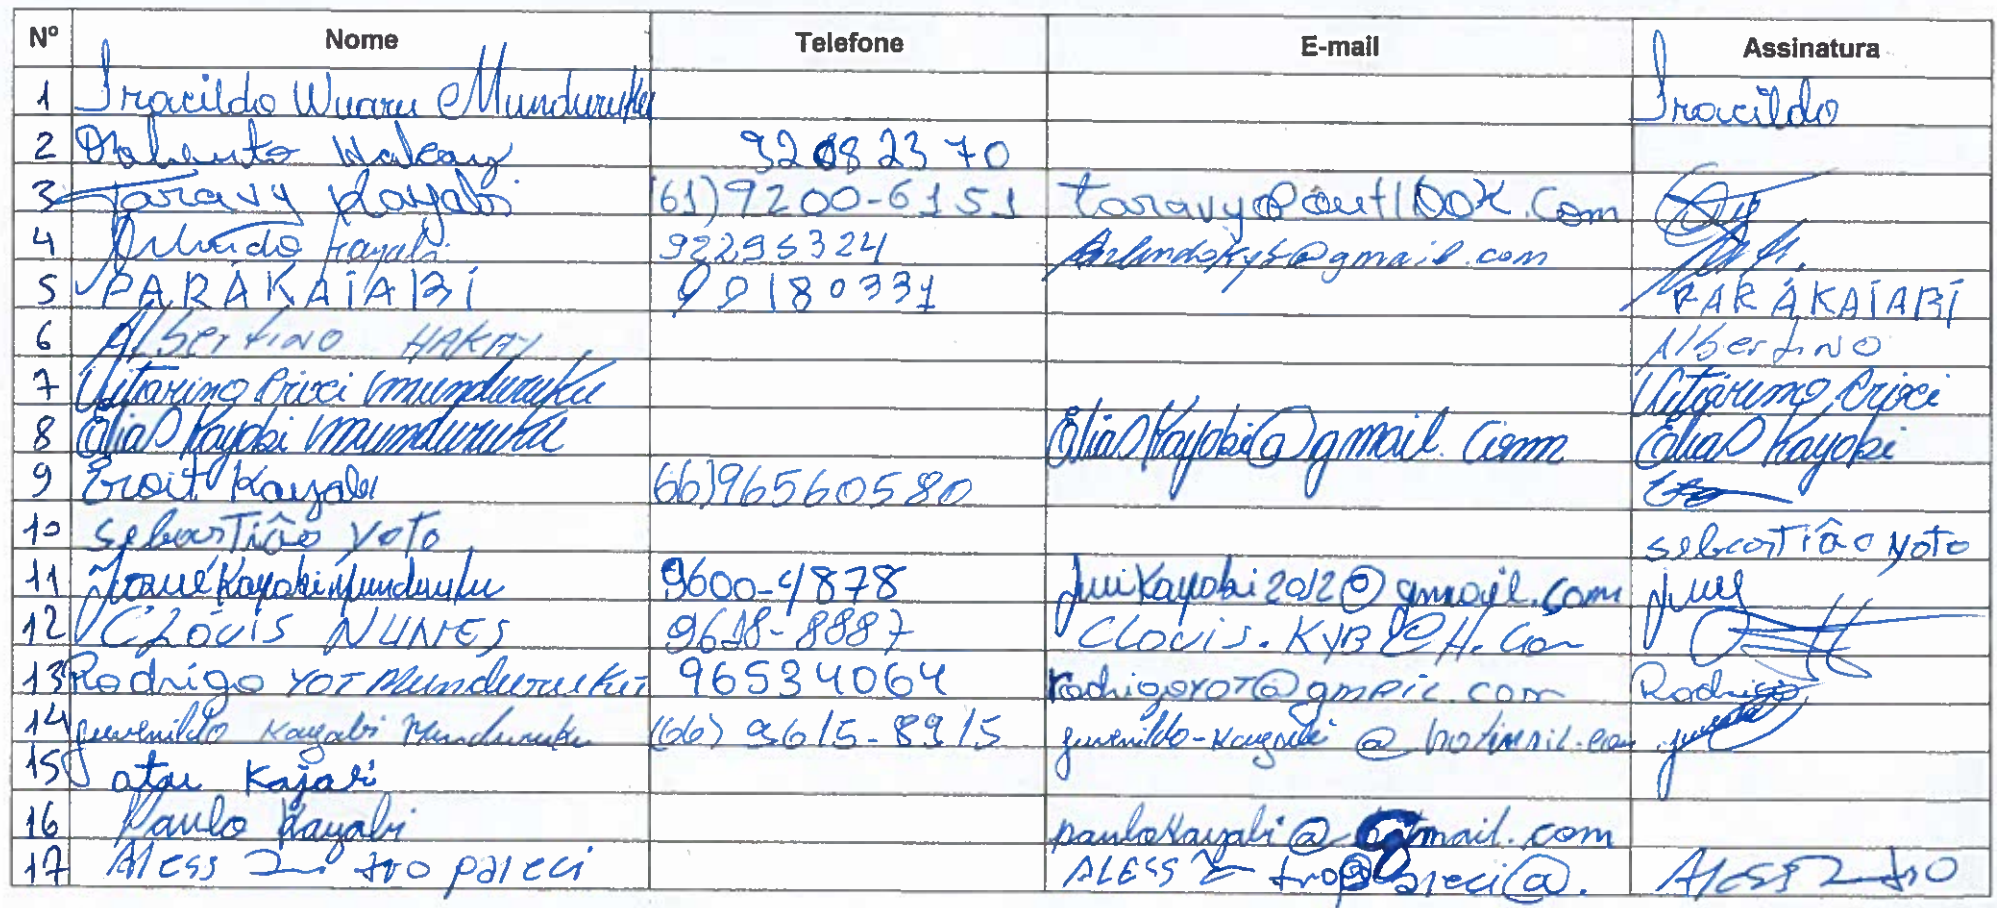 Nº Nome Telefone E-mail Assinatura
1 Iracildo Wuaru Munduruku Iracildo
2 Wakay 92082370
3 Taravy Kayabi (61)9200-6151 taravy@outlook.com
4 Kayabi 92295324 @gmail.com
5 PARÁKAÍABÍ 99180331 PARÁKAÍABÍ
6 Albertino HAKAY Albertino
7 Vitorino Crixi Munduruku Vitorino Crixi
8 Elias Kayabi Munduruku EliasKayabi@gmail.com Elias Kayabi
9 Eroit Kayabi (66)96560580
10 sebastiâo yoto sebastiâo yoto
11 Josué Kayabi Munduruku 9600-4878 juikayabi2012@gmail.com
12 CLÓVIS NUNES 9618-8887 CLOVIS.KYB@H.Com
13 Rodrigo YOT Munduruku 96534064 rodrigoyot@gmail.com Rodrigo
14 juvenildo Kayabi Munduruku (66) 9615-8915 juvenildo-kayabi@hotmail.com
15 atau Kajabi
16 Paulo Kayabi paulokayabi@gmail.com
17 Alessandro pareci Alessandro